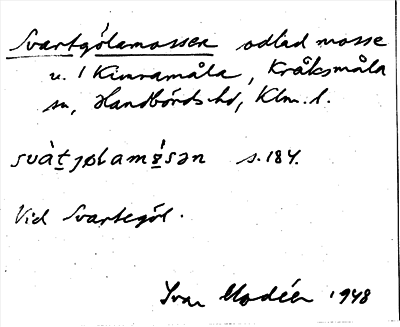 Svartgölamossen odlad mosse
u. / Kinramåla, Kråksmåla
sn, Handbörds hd, Klm. l.
svàt̲jølamɷ̀sən s. 184.
Vid Svartegöl.
Ivar Modéer 1948